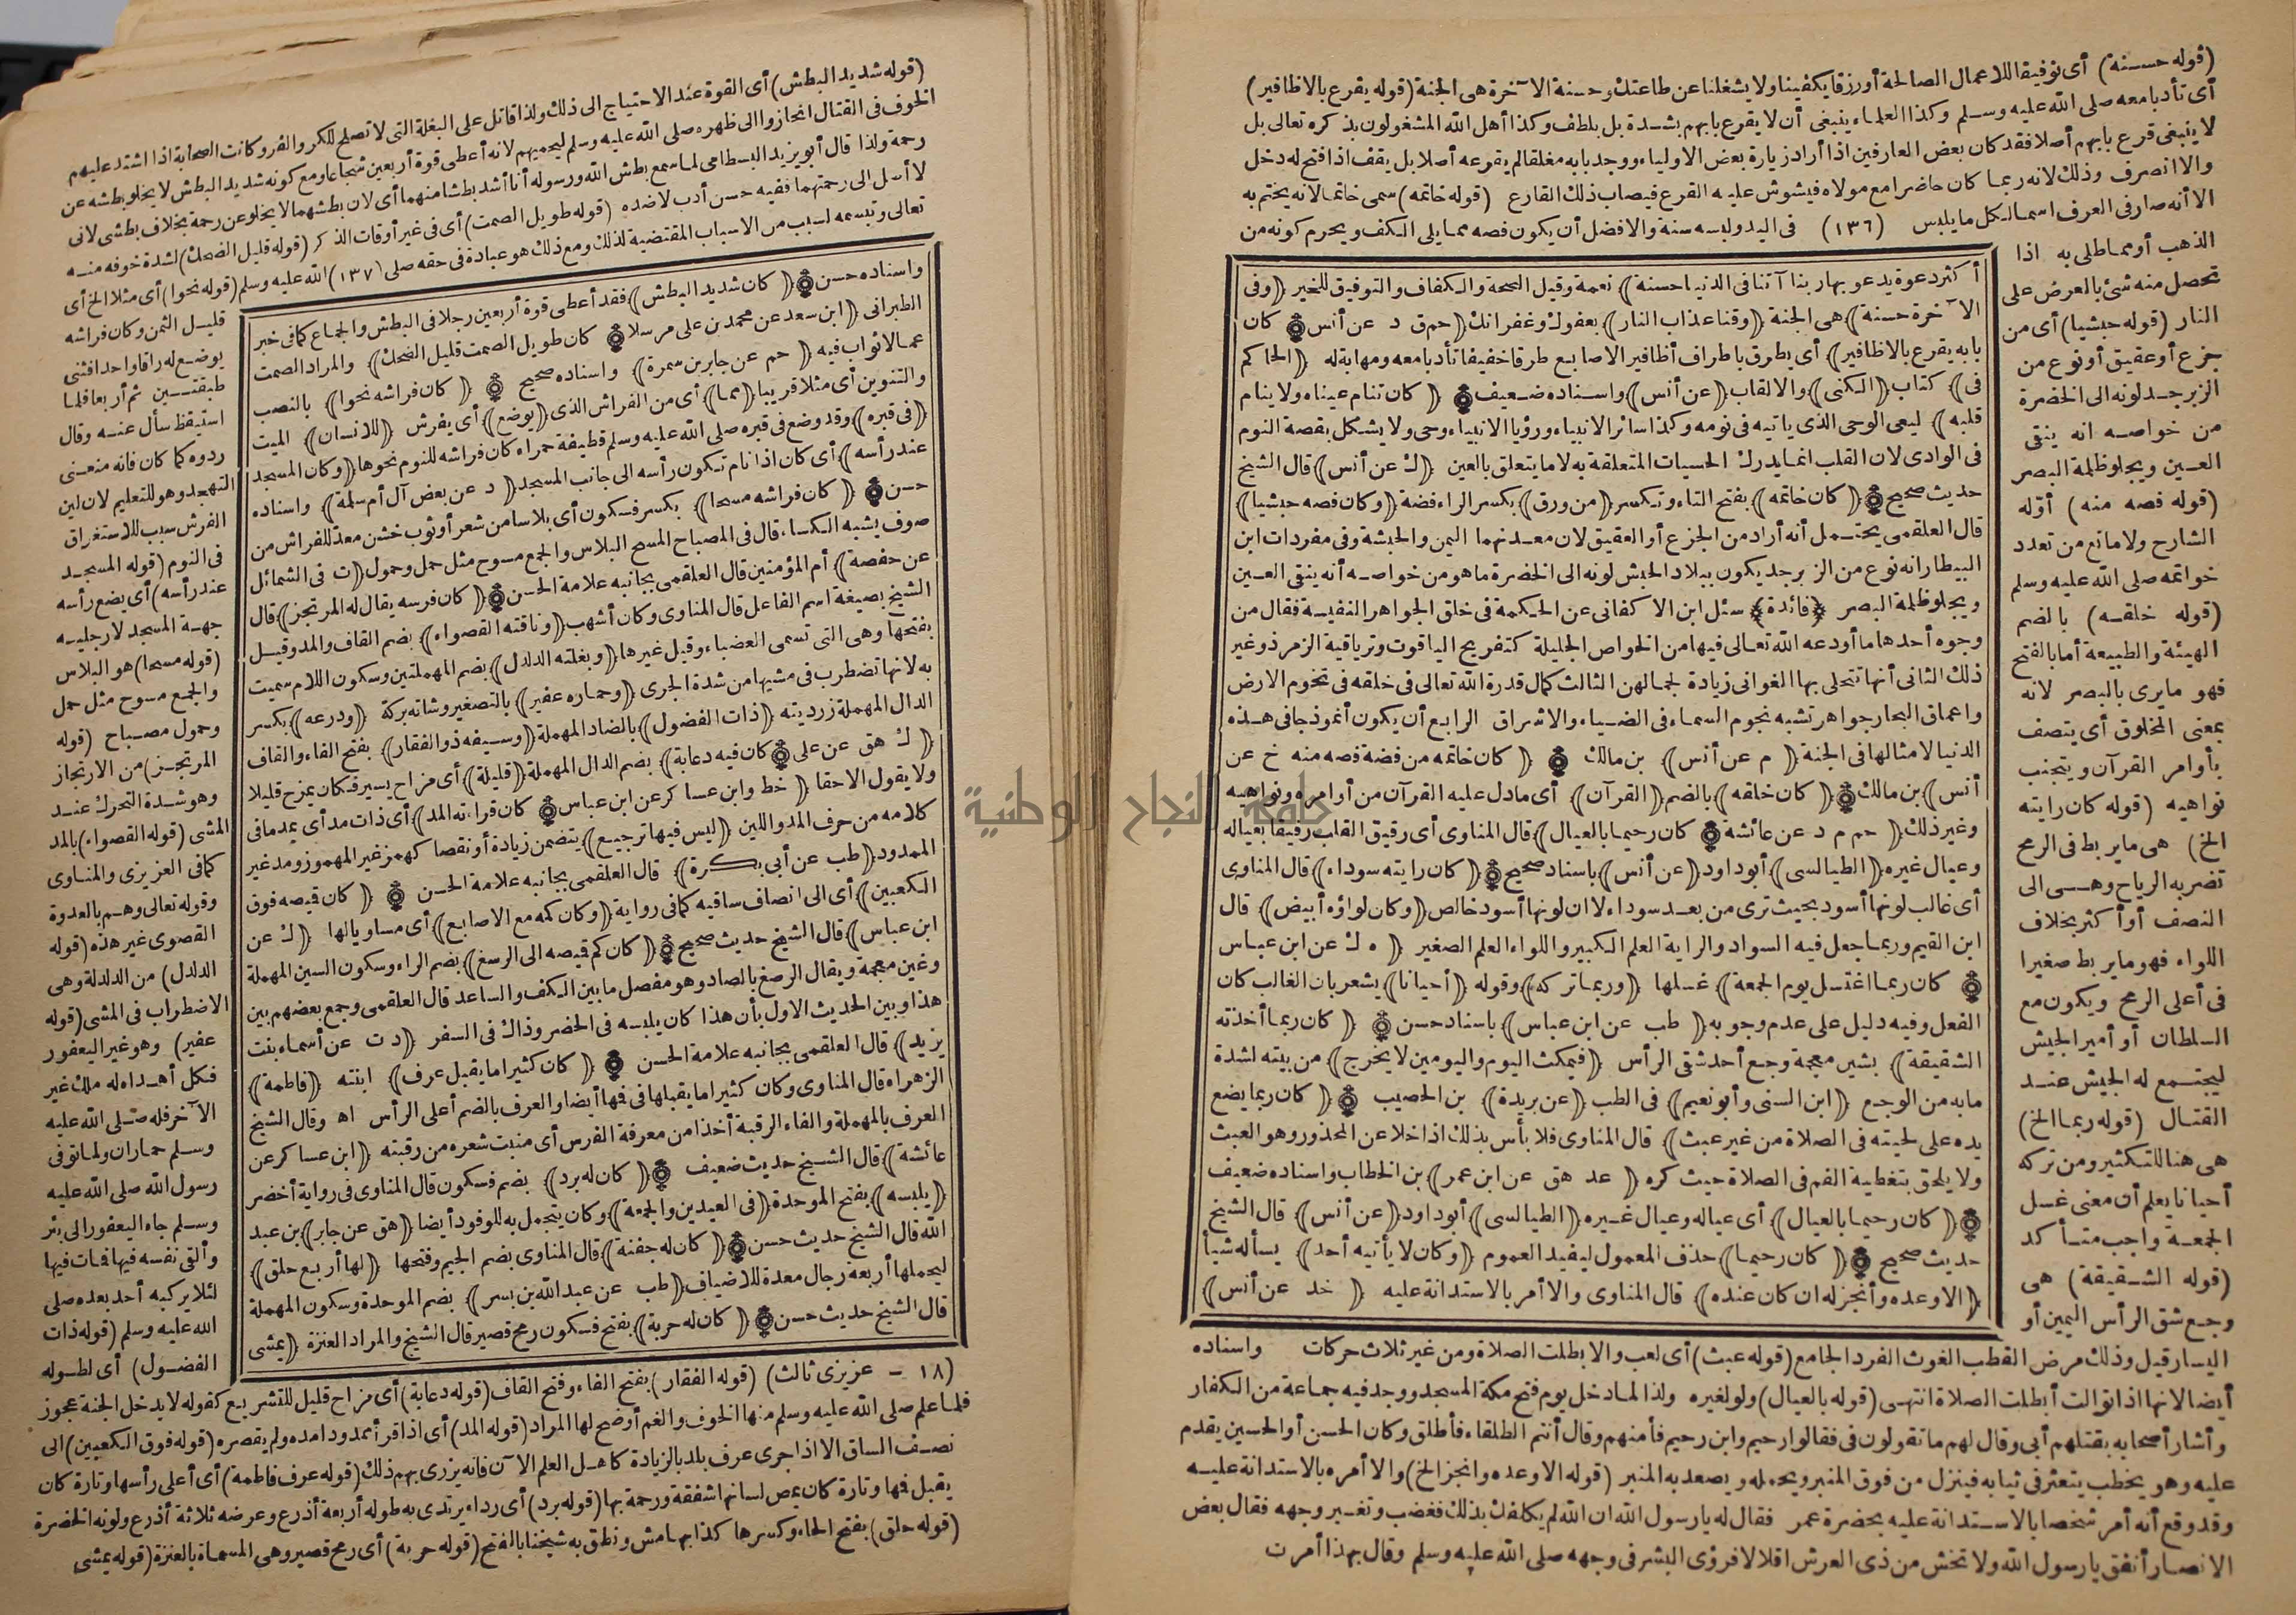 (قوله حسنة) أى توفيقا للاعمال الصالحة أو رزقا يكفينا ولا يشغلنا عن طاعتك وحسنة الآخرة هى الجنة (قوله يقرع بالاظافير)
أى تأدبا معه صلى الله عليه وسلم وكذا العلماء ينبغى أن لا يقرع بابهم بشدة بل بلطف وكذا أهل الله المشغولون بذكره تعالى بل
لا ينبغى قرع بابهم أصلا فقد كان بعض العارفين اذا أراد زيارة بعض الاولياء ووجد بابه مغلقا لم يقرعه أصلا بل يقف اذا فتح له دخل
والا انصرف وذلك لانه ربما كان حاضرا مع مولاه فيشوش عليه القرع فيصاب ذلك القارع (قوله خاتمه) سمى خاتما لانه يختم به
الا أنه صار فى العرف اسما لكل ما يلبس (١٣٦) فى اليد ولبسه سنة والافضل أن يكون فصه مما يلى الكف ويحرم كونه من
الذهب أو مما طلى به اذا
تحصل منه شئ بالعرض على
النار (قوله حبشيا) أى من
جزع أو عقيق أو نوع من
الزبرجد لونه الى الخضرة
من خواصه انه ينقى
العين ويجلو ظلمة البصر
(قوله فصه منه) أوّله
الشارح ولا مانع من تعدد
خواتمه صلى الله عليه وسلم
(قوله خلقه) بالضم
الهيئة والطبيعة أما بالفتح
فهو ما يرى بالبصر لانه
بمعنى المخلوق أى يتصف
بأوامر القرآن ويتجنب
نواهيه (قوله كان رايته
الخ) هى ما يربط فى الرمح
تضربه الرياح وهى الى
النصف أو أكثر بخلاف
اللواء فهو ما يربط صغيرا
فى أعلى الرمح ويكون مع
السلطان أو أمير الجيش
ليجتمع له الجيش عند
القتال (قوله ربما الخ)
هى هنا للتكثير ومن تركه
أحيانا يعلم أن معنى غسل
الجمعة واجب متأكد
(قوله الشقيقة) هى
وجع شق الرأس اليمين أو
أكثر دعوة يدعو بها ربنا آتنا فى الدنيا حسنة) نعمة وقيل الصحة والكفاف والتوفيق للخير (وفى
الآخرة حسنة) هى الجنة (وقنا عذاب النار) بعفوك وغفرانك (حم ق د عن أنس كان
بابه يقرع بالاظافير) أى يطرق باطراف أظافير الاصابع طرقا خفيفا تأدبا معه ومهابة له (الحاكم
فى) كتاب (الكنى) والالقاب (عن أنس) واسناده ضعيف (كان تنام عيناه ولا ينام
قلبه) ليعى الوحى الذى ياتيه فى نومه وكذا سائر الانبياء ورؤيا الانبياء وحى ولا يشكل بقصة النوم
فى الوادى لان القلب انما يدرك الحسيات المتعلقة به لا ما يتعلق بالعين (ك عن أنس) قال الشيخ
حديث صحيح (كان خاتمه) بفتح التاء وتكسر (من ورق) بكسر الراء فضة (وكان فصه حبشيا)
قال العلقمى يحتمل أنه أراد من الجزع أو العقيق لان معدنهما اليمن والحبشة وفى مفردات ابن
البيطار انه نوع من الزبرجد يكون ببلاد الحبش لونه الى الخضرة ما هو من خواصه أنه ينقى العين
ويجلو ظلمة البصر (فائدة) سئل ابن الاكفانى عن الحكمة فى خلق الجواهر النفيسة فقال من
وجوه أحدها ما أودعه الله تعالى فيها من الخواص الجليلة كتفريح الياقوت وترياقية الزمرذ وغير
ذلك الثانى أنها تتحلى بها الغوانى زيادة لجمالهن الثالث كمال قدرة الله تعالى فى خلقه فى تخوم الارض
واعماق البحار جواهر تشبه نجوم السماء فى الضياء والاشراق الرابع أن يكون أنموذجا فى هذه
الدنيا لامثالها فى الجنة (م عن أنس) بن مالك (كان خاتمه من فضة فصه منه خ عن
أنس) بن مالك (كان خلقه) بالضم (القرآن) أى ما دل عليه القرآن من أوامره ونواهيه
وغير ذلك (حم م د عن عائشه كان رحيما بالعيال) قال المناوى أى رقيق القلب رفيقا بعياله
وعيال غيره (الطيالسى) أبو داود (عن أنس) باسناد صحيح (كان رايته سوداء) قال المناوى
أى غالب لونها أسود بحيث ترى من بعد سوداء لا ان لونها أسود خالص (وكان لواؤه أبيض) قال
ابن القيم وربما جعل فيه السواد والراية العلم الكبير واللواء العلم الصغير (ه ك عن ابن عباس
كان ربما اغتسل يوم الجمعة) غسلها (وربما تركه) وقوله (أحيانا) يشعر بان الغالب كان
الفعل وفيه دليل على عدم وجوبه (طب عن ابن عباس) باسناد حسن (كان ربما أخذته
الشقيقة) بشين معجمة وجع أحد شقى الرأس (فيمكث اليوم واليومين لا يخرج) من بيته لشدة
ما به من الوجع (ابن السنى وأبو نعيم) فى الطب (عن بريدة) بن الحصيب (كان ربما يضع
يده على لحيته فى الصلاة من غير عبث) قال المناوى فلا بأس بذلك اذا خلا عن المحذور وهو العبث
ولا يلحق بتغطية الفم فى الصلاة حيث كره (عد هق عن ابن عمر) بن الخطاب واسناده ضعيف
(كان رحيما بالعيال) أى عياله وعيال غيره (الطيالسى) أبو داود (عن أنس) قال الشيخ
حديث صحيح (كان رحيما) حذف المعمول ليفيد العموم (وكان لا يأتيه أحد) يسأله شيأ
(الا وعده وأنجز له ان كان عنده) قال المناوى والا أمر بالاستدانة عليه (خد عن أنس)
اليسار قيل وذلك مرض القطب الغوث الفرد الجامع (قوله عبث) أى لعب والا بطلت الصلاة ومن غير ثلاث حركات واسناده
أيضا لانها اذا توالت أبطلت الصلاة انتهى (قوله بالعيال) ولو لغيره ولذا لما دخل يوم فتح مكة المسجد ووجد فيه جماعة من الكفار
وأشار أصحابه بقتلهم أبى وقال لهم ما تقولون فى فقالوا رحيم وابن رحيم فأمنهم وقال أنتم الطلقاء فأطلق وكان الحسن أو الحسين يقدم
عليه وهو يخطب يتعثر فى ثيابه فينزل من فوق المنبر ويحمله ويصعد به المنبر (قوله الا وعده وانجز الخ) والا أمره بالاستدانة عليه
وقد وقع أنه أمر شخصا بالاستدانة عليه بحضرة عمر فقال له يا رسول الله ان الله لم يكلفك بذلك فغضب وتغير وجهه فقال بعض
الانصار أنفق يا رسول الله ولا تخش من ذى العرش اقلالا فرؤى البشر فى وجهه صلى الله عليه وسلم وقال بهذا أمرت
(قوله شديد البطش) أى القوة عند الاحتياج الى ذلك ولذا قاتل على البغلة التى لا تصلح للكر والفر وكانت الصحابة اذا اشتد عليهم
الخوف فى القتال انحازوا الى ظهره صلى الله عليه وسلم ليحميهم لانه أعطى قوة أربعين شجاعا ومع كونه شديد البطش لا يخلو بطشه عن
رحمة ولذا قال أبو يزيد البسطامى لما سمع بطش الله ورسوله أنا أشد بطشا منهما أى لان بطشهما لا يخلو عن رحمة بخلاف بطشى لانى
لا أسل الى رحمتهما ففيه حسن أدب لا ضده (قوله طويل الصمت) أى فى غير أوقات الذكر (قوله قليل الضحك) لشدة خوفه منه
تعالى وتبسمه لسبب من الاسباب المقتضية لذلك ومع ذلك هو عبادة فى حقه صلى (١٣٧) الله عليه وسلم (قوله نحوا) أى مثلا الخ أى
واسناده حسن (كان شديد البطش) فقد أعطى قوة أربعين رجلا فى البطش والجماع كما فى خبر
الطبرانى (ابن سعد عن محمد بن على مرسلا كان طويل الصمت قليل الضحك) والمراد الصمت
عما لا ثواب فيه (حم عن جابر بن سمرة) واسناده صحيح (كان فراشه نحوا) بالنصب
والتنوين أى مثلا قريبا (مما) أى من الفراش الذى (يوضع) أى يفرش (للانسان) الميت
(فى قبره) وقد وضع فى قبره صلى الله عليه وسلم قطيفة حمراء كان فراشه للنوم نحوها (وكان المسجد
عند رأسه) أى كان اذا نام تكون رأسه الى جانب المسجد (د عن بعض آل أم سلمة) واسناده
حسن (كان فراشه مسحا) بكسر فسكون أى بلاسا من شعر أو ثوب خشن معد للفراش من
صوف يشبه الكساء قال فى المصباح المسح البلاس والجمع مسوح مثل حمل وحمول (ت فى الشمائل
عن حفصة) أم المؤمنين قال العلقمى بجانبه علامة الحسن (كان فرسه يقال له المرتجز) قال
الشيخ بصيغة اسم الفاعل قال المناوى وكان أشهب (وناقته القصواء) بضم القاف والمد وقيل
بفتحها وهى التى تسمى العضباء وقيل غيرها (وبغلته الدلدل) بضم المهملتين وسكون اللام سميت
به لانها تضطرب فى مشيها من شدة الجرى (وحماره عفير) بالتصغير وشاته بركة (ودرعه) بكسر
الدال المهملة زرديته (ذات الفضول) بالضاد المهملة (وسيفه ذو الفقار) بفتح الفاء والقاف
(ك هق عن على كان فيه دعابة) بضم الدال المهملة (قليلة) أى مزاح يسير فكان يمزح قليلا
ولا يقول الا حقا (خط وابن عساكر عن ابن عباس كان قراءته المد) أى ذات مد أى يمد ما فى
كلامه من حرف المد واللين (ليس فيها ترجيع) يتضمن زيادة أو نقصا كهمز غير المهموز ومد غير
الممدود (طب عن أبى بكرة) قال العلقمى بجانبه علامة الحسن (كان قميصه فوق
الكعبين) أى الى انصاف ساقيه كما فى رواية (وكان كمه مع الاصابع) أى مساويا لها (ك عن
ابن عباس) قال الشيخ حديث صحيح (كان كم قميصه الى الرسغ) بضم الراء وسكون السين المهملة
وغين معجمة ويقال الرصغ بالصاد وهو مفصل ما بين الكف والساعد قال العلقمى وجمع بعضهم بين
هذا وبين الحديث الاول بأن هذا كان يلبسه فى الحضر وذاك فى السفر (د ت عن أسماء بنت
يزيد) قال العلقمى بجانبه علامة الحسن (كان كثيرا ما يقبل عرف) ابنته (فاطمة)
الزهراء قال المناوى وكان كثيرا ما يقبلها فى فمها أيضا والعرف بالضم أعلى الرأس اه وقال الشيخ
العرف بالمهملة والفاء الرقبة أخذا من معرفة الفرس أى منبت شعره من رقبته (ابن عساكر عن
عائشة) قال الشيخ حديث ضعيف (كان له برد) بضم فسكون قال المناوى فى رواية أخضر
(يلبسه) بفتح الموحدة (فى العيدين والجمعة) وكان يتجمل به للوفود أيضا (هق عن جابر) بن عبد
الله قال الشيخ حديث حسن (كان له جفنة) قال المناوى بضم الجيم وفتحها (لها أربع حلق)
ليحملها أربعة رجال معدة للاضياف (طب عن عبد الله بن بسر) بضم الموحدة وسكون المهملة
قال الشيخ حديث حسن (كان له حربة) بفتح فسكون رمح قصير قال الشيخ والمراد العنزة (يمشى
قليل الثمن وكان فراشه
يوضع له راقا واحدا فثنى
طبقتين ثم أربعا فلما
استيقظ سأل عنه وقال
ردوه كما كان فانه منعنى
التهجد وهو للتعليم لان لين
الفرش سبب للاستغراق
فى النوم (قوله المسجد
عند رأسه) أى يضع رأسه
جهة المسجد لا رجليه
(قوله مسحا) هو البلاس
والجمع مسوح مثل حمل
وحمول مصباح (قوله
المرتجز) من الارتجاز
وهو شدة التحرك عند
المشى (قوله القصواء) بالمد
كما فى العزيزى والمناوى
وقوله تعالى وهم بالعدوة
القصوى غير هذه (قوله
الدلدل) من الدلدلة وهى
الاضطراب فى المشى (قوله
عفير) وهو غير اليعفور
فكل أهداه له ملك غير
الآخر فله صلى الله عليه
وسلم حماران ولما توفى
رسول الله صلى الله عليه
وسلم جاء اليعفور الى بئر
وألقى نفسه فيها فمات فيها
لئلا يركبه أحد بعده صلى
الله عليه وسلم (قوله ذات
الفضول) أى لطوله
(١٨ - عزيزى ثالث) (قوله الفقار) بفتح الفاء وفتح القاف (قوله دعابة) أى مزاح قليل للتشريع كقوله لا يدخل الجنة عجوز
فلما علم صلى الله عليه وسلم منها الخوف والغم أوضح لها المراد (قوله المد) أى اذا قرأ ممدودا مده ولم يقصره (قوله فوق الكعبين) الى
نصف الساق الا اذا جرى عرف بلد بالزيادة كاهل العلم الآن فانه يزرى بهم ذلك (قوله عرف فاطمة) أى أعلى رأسها وتارة كان
يقبل فمها وتارة كان يمص لسانها شفقة ورحمة بها (قوله برد) أى رداء يرتدى به طوله أربعة أذرع وعرضه ثلاثة أذرع ولونه الخضرة
(قوله حلق) بفتح الحاء وكسرها كذا بهامش ونطق به شيخنا بالفتح (قوله حربة) أى رمح قصير وهى المسماة بالعنزة (قوله يمشى
جامعة النجاح الوطنية